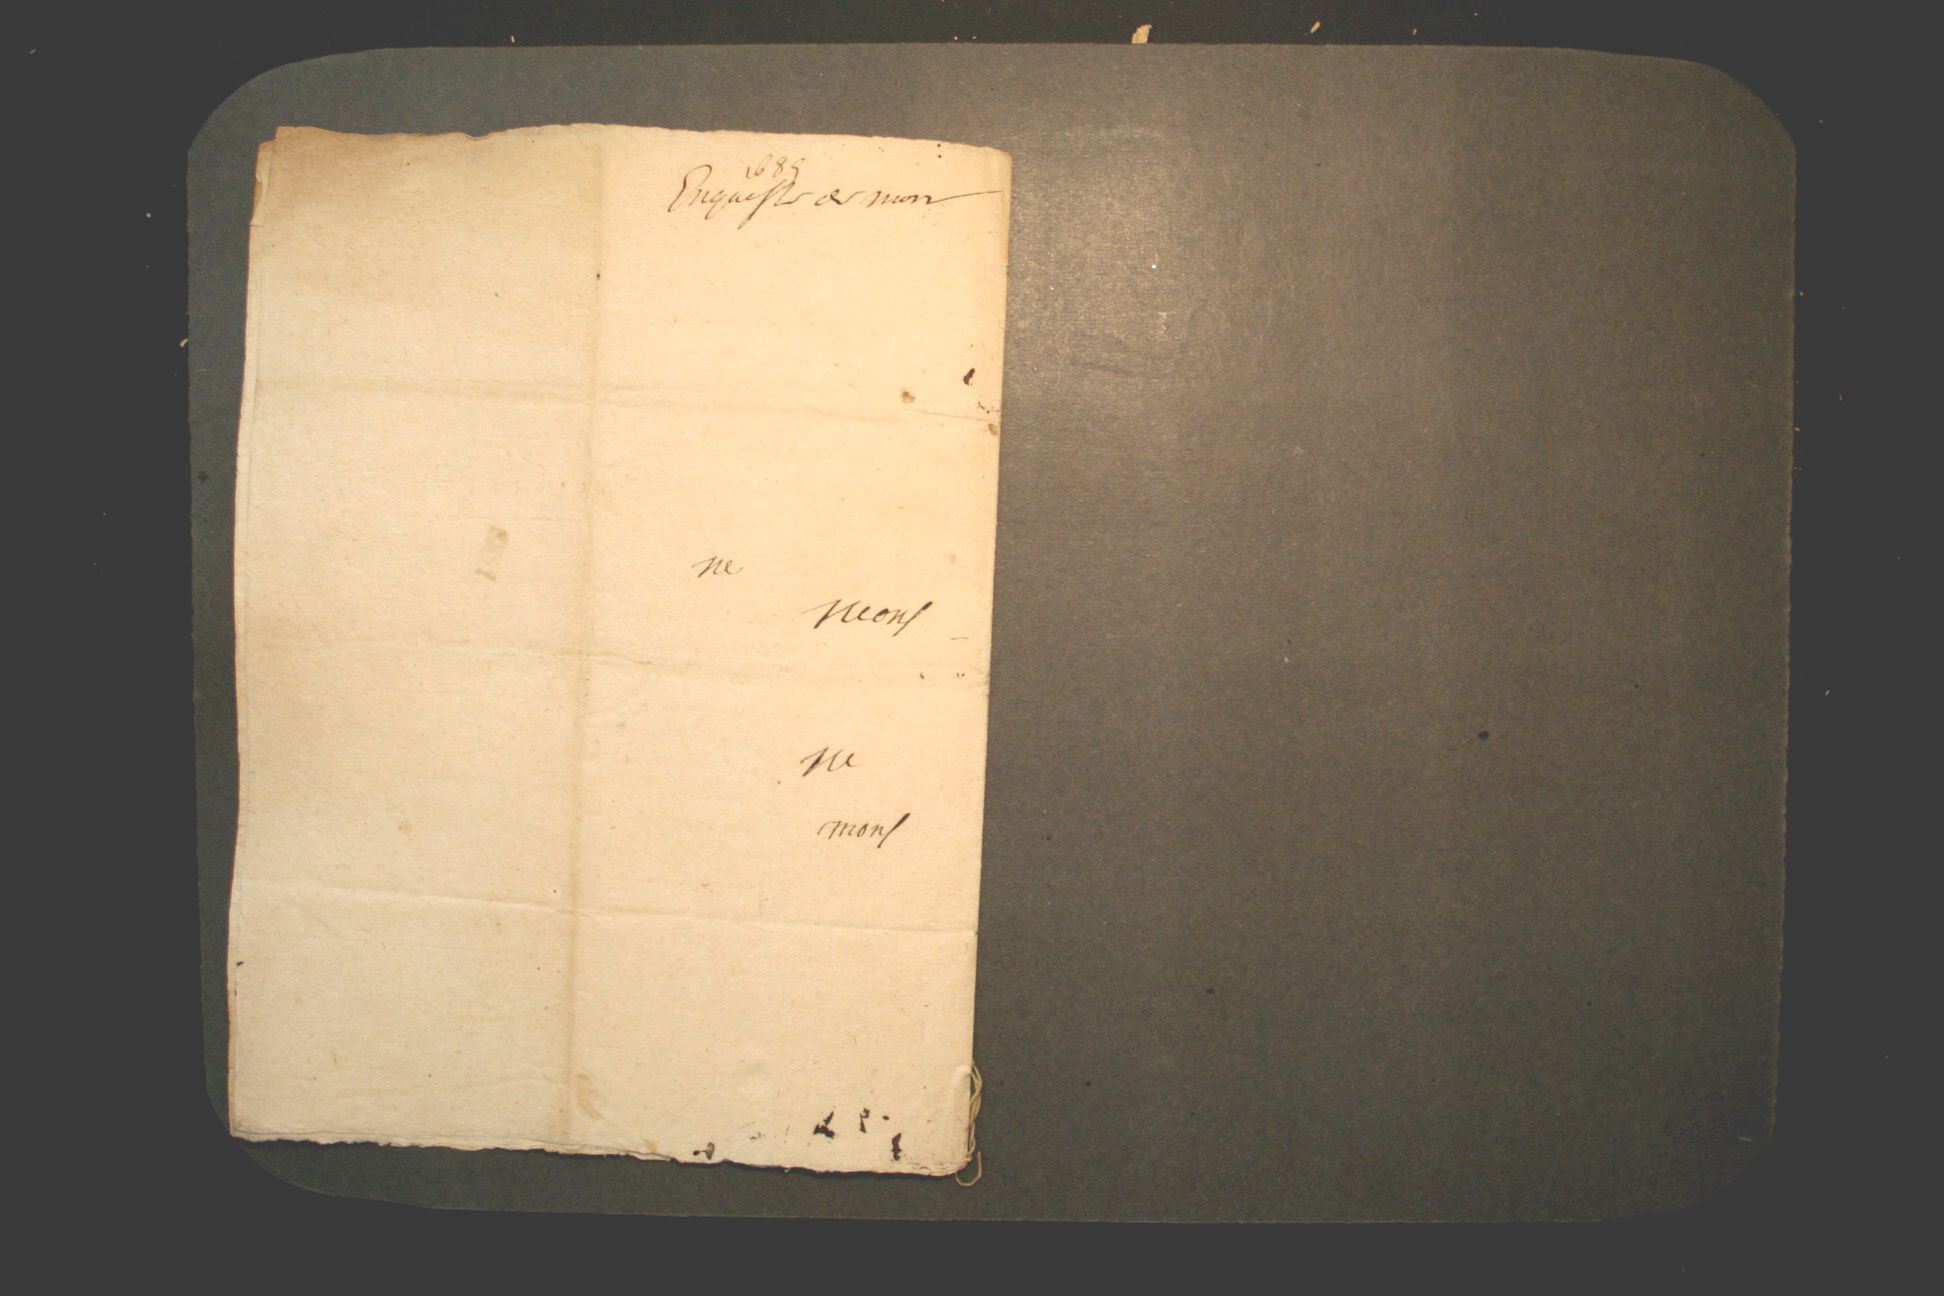 1689
Enqueste de mon
ne
mons
ne
mons